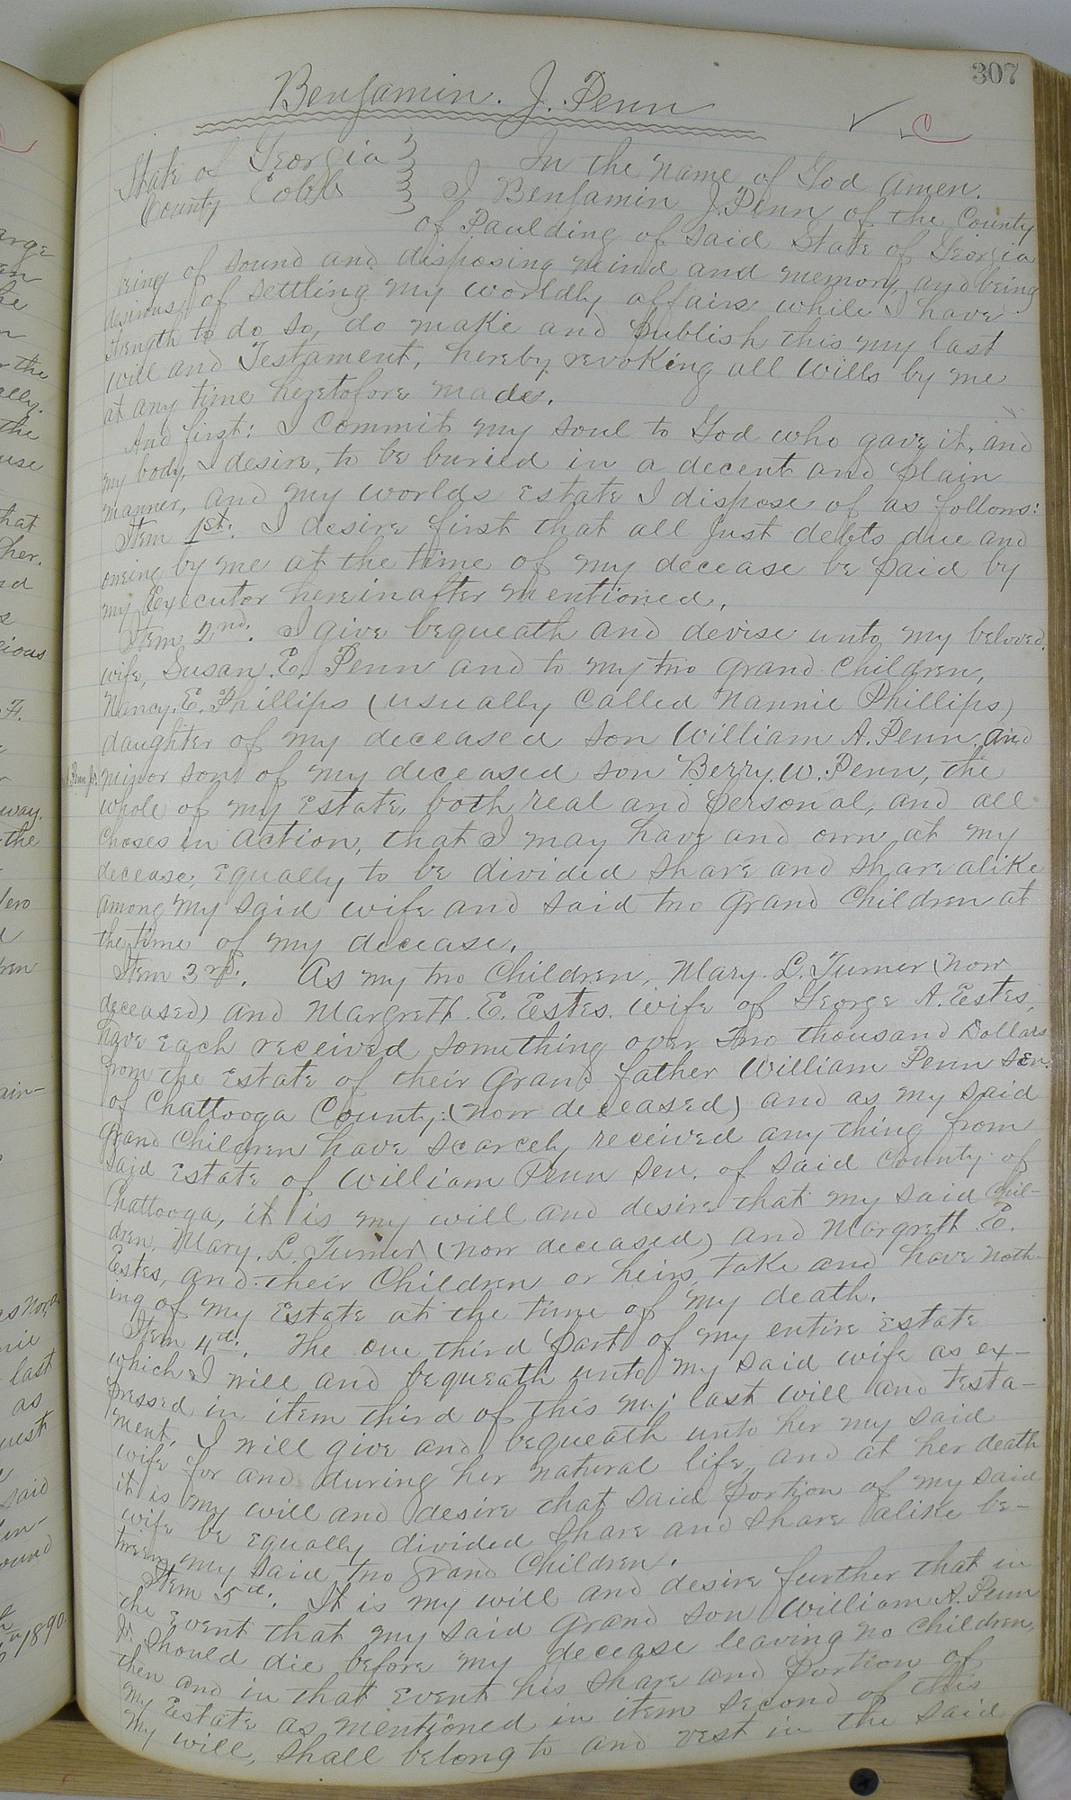 307
Benjamin. J. Penn
C
State of Georgia
County Cobb
In the name of God Amen.
I Benjamin J. Penn of the County
of Paulding of said State of Georgia
being of sound and disposing mind and memory, and being
desirous of settling my worldly affairs while I have
strength to do so, do make and publish this my last
will and Testament, hereby revoking all wills by me
at any time heretofore made.
And first: I Commit my soul to God who gave it, and
my body, I desire, to be buried in a decent and plain
manner, and my worlds Estate I dispose of as follows:
Item 1st: I desire first that all just debts due and
oweing by me at the time of my decease be paid by
my Executor hereinafter mentioned.
Item 2nd. I give bequeath and devise unto my beloved
wife, Susan. E. Penn and to my two grand children,
Nancy. E. Phillips (usually called Nannie Phillips)
daughter of my deceased son William A. Penn. and
minor son of my deceased son Berry. W. Penn, the
whole of my Estate, both real and personal, and all
choses in action, that I may have and own at my
decease, Equally to be divided share and share alike
among my said wife and said two grand children at
the time of my decease.
Item 3rd. As my two Children, Mary. L. Turner (now
deceased) and Margreth. E. Estes. wife of George A. Estes,
have each received something over two thousand Dollars
from the Estate of their Grand father William Penn Sen.
of Chattooga County: (now deceased) and as my said
grand Children have scarcely received any thing from
said Estate of William Penn Sen. of said County of
Chattooga, it is my will and desire that my said chil-
dren, Mary. L. Turner (now deceased) and Margreth E.
Estes, and their Children or heirs, take and have noth-
ing of my Estate at the time of my death.
Item 4d. The one third part of my entire Estate
which I will and bequeath unto my said wife as ex-
pressed in item third of this my last will and testa-
ment, I will give and bequeath unto her my said
wife for and during her natural life, and at her death
it is my will and desire that said portion of my said
wife be equally divided share and share alike be-
tween my said two grand Children.
Item 5d. It is my will and desire further that in
the Event that my said grand son William A. Penn
Jr. should die before my decease leaving no children,
then and in that Event his share and portion of
my Estate as mentioned in item second of this
my will, shall belong to and vest in the said